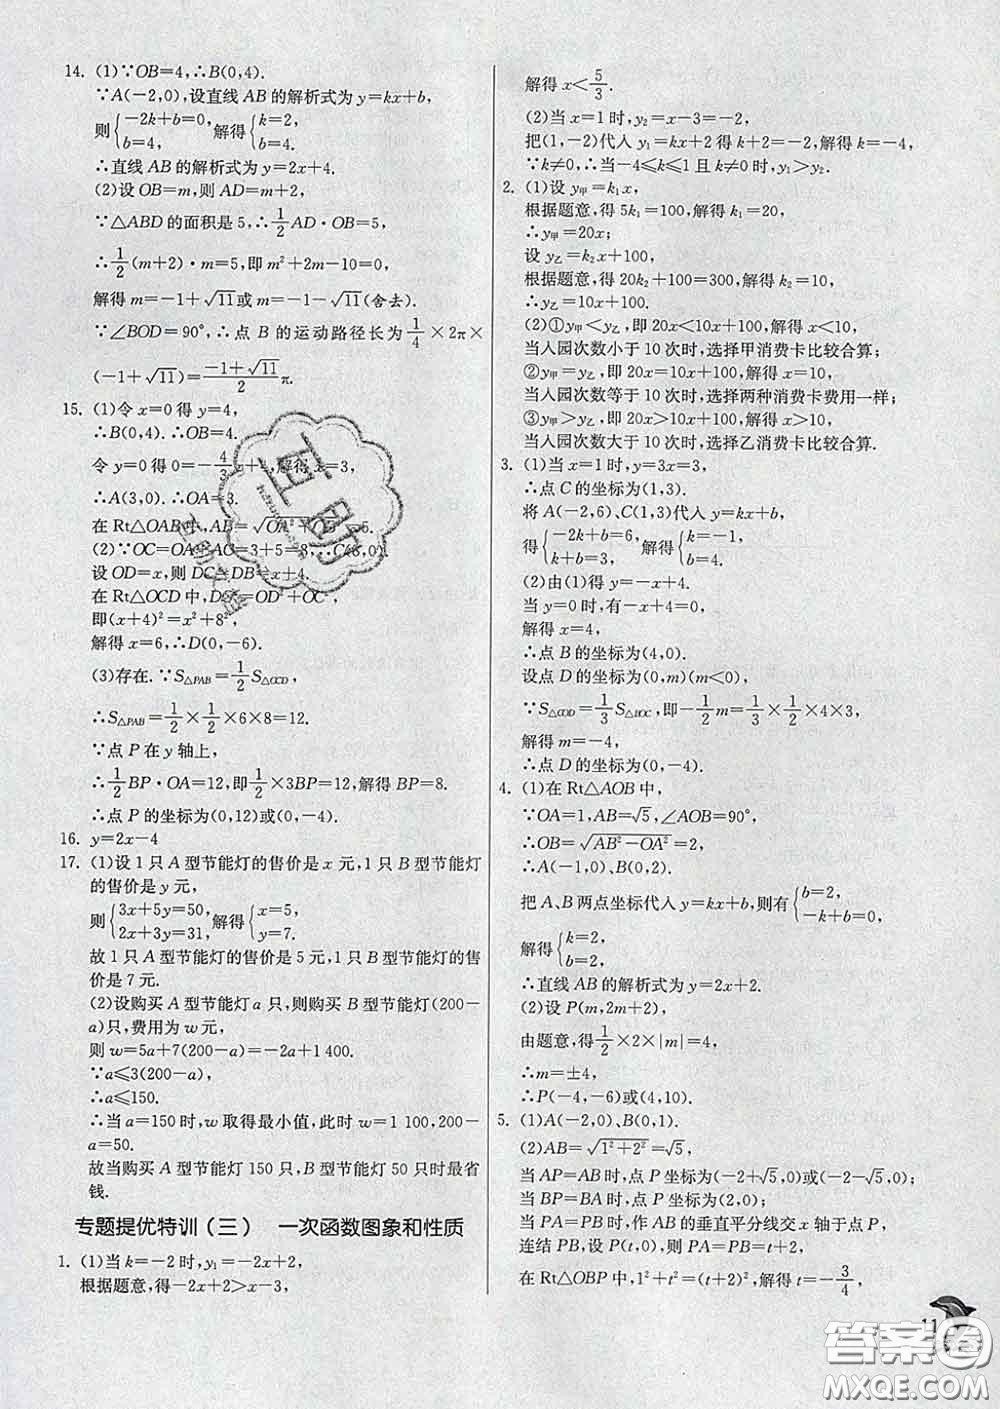 14. (1)∵OB=4,∴B(0,4).
∵A(−2,0),设直线 AB 的解析式为 y=kx+b,
则{−2k+b=0, b=4. 解得{k=2, b=4.
∴直线 AB 的解析式为 y=2x+4.
(2)设 OB=m,则 AD=m+2,
∵△ABD 的面积是 5,∴1/2 AD·OB=5,
∴1/2(m+2)·m=5,即 m²+2m−10=0,
解得 m=−1+√11或 m=−1−√11(舍去).
∵∠BOD=90°,∴点 B 的运动路径长为 1/4×2π×
(−1+√11)=(−1+√11)/2 π.
15. (1)令 x=0 得 y=4,
∴B(0,4).∴OB=4.
令 y=0 得 0=−4/3 x+4,解得 x=3,
∴A(3,0).∴OA=3.
在 Rt△OAB 中,AB=√(OA²+OB²)=5.
(2)∵OC=OA+AC=3+5=8,∴C(8,0).
设 OD=x,则 DC=DB=x+4.
在 Rt△OCD 中,DC²=OD²+OC²,
即(x+4)²=x²+8²,
解得 x=6,∴D(0,−6).
(3)存在.∵S△PAB=1/2 S△OCD,
∴S△PAB=1/2×1/2×6×8=12.
∵点 P 在 y 轴上,
∴1/2 BP·OA=12,即1/2×3BP=12,解得 BP=8.
∴点 P 的坐标为(0,12)或(0,−4).
16. y=2x−4
17. (1)设 1 只 A 型节能灯的售价是 x 元,1 只 B 型节能灯
的售价是 y 元,
则{3x+5y=50, 2x+3y=31, 解得{x=5, y=7.
故 1 只 A 型节能灯的售价是 5 元,1 只 B 型节能灯的售
价是 7 元.
(2)设购买 A 型节能灯 a 只,则购买 B 型节能灯(200−
a)只,费用为 w 元,
则 w=5a+7(200−a)=−2a+1 400.
∵a≤3(200−a),
∴a≤150.
∴当 a=150 时,w 取得最小值,此时 w=1 100,200−
a=50.
故当购买 A 型节能灯 150 只,B 型节能灯 50 只时最省
钱.
专题提优特训(三) 一次函数图象和性质
1. (1)当 k=−2 时,y₁=−2x+2,
根据题意,得−2x+2>x−3,
解得 x<5/3.
(2)当 x=1 时,y₂=x−3=−2,
把(1,−2)代入 y₁=kx+2 得 k+2=−2,解得 k=−4,
∵k≠0,∴当−4≤k≤1 且 k≠0 时,y₁>y₂.
2. (1)设 y甲=k₁x,
根据题意,得 5k₁=100,解得 k₁=20,
∴y甲=20x;
设 y乙=k₂x+100,
根据题意,得 20k₂+100=300,解得 k₂=10,
∴y乙=10x+100.
(2)①y甲<y乙,即 20x<10x+100,解得 x<10,
当入园次数小于 10 次时,选择甲消费卡比较合算;
②y甲=y乙,即 20x=10x+100,解得 x=10,
当入园次数等于 10 次时,选择两种消费卡费用一样;
③y甲>y乙,即 20x>10x+100,解得 x>10,
当入园次数大于 10 次时,选择乙消费卡比较合算.
3. (1)当 x=1 时,y=3x=3,
∴点 C 的坐标为(1,3).
将 A(−2,6)、C(1,3)代入 y=kx+b,
得{−2k+b=6, k+b=3, 解得{k=−1, b=4.
(2)由(1)得 y=−x+4.
当 y=0 时,有−x+4=0,
解得 x=4,
∴点 B 的坐标为(4,0).
设点 D 的坐标为(0,m)(m<0),
∵S△COD=1/3 S△BOC,即−1/2 m=1/3×1/2×4×3,
解得 m=−4,
∴点 D 的坐标为(0,−4).
4. (1)在 Rt△AOB 中,
∵OA=1,AB=√5,∠AOB=90°,
∴OB=√(AB²−OA²)=2,
∴A(−1,0)、B(0,2).
把 A、B 两点坐标代入 y=kx+b,则有{b=2, −k+b=0,
解得{k=2, b=2,
∴直线 AB 的解析式为 y=2x+2.
(2)设 P(m,2m+2),
由题意,得1/2×2×|m|=4,
∴m=±4,
∴P(−4,−6)或(4,10).
5. (1)A(−2,0),B(0,1).
(2)AB=√(1²+2²)=√5,
当 AP=AB 时,点 P 坐标为(−2+√5,0)或(−2−√5,0);
当 BP=BA 时,点 P 坐标为(2,0);
当 PA=PB 时,作 AB 的垂直平分线交 x 轴于点 P,
连结 PB,设 P(t,0),则 PA=PB=t+2,
在 Rt△OBP 中,1²+t²=(t+2)²,解得 t=−3/4,
11
答案圈
MXQE.COM